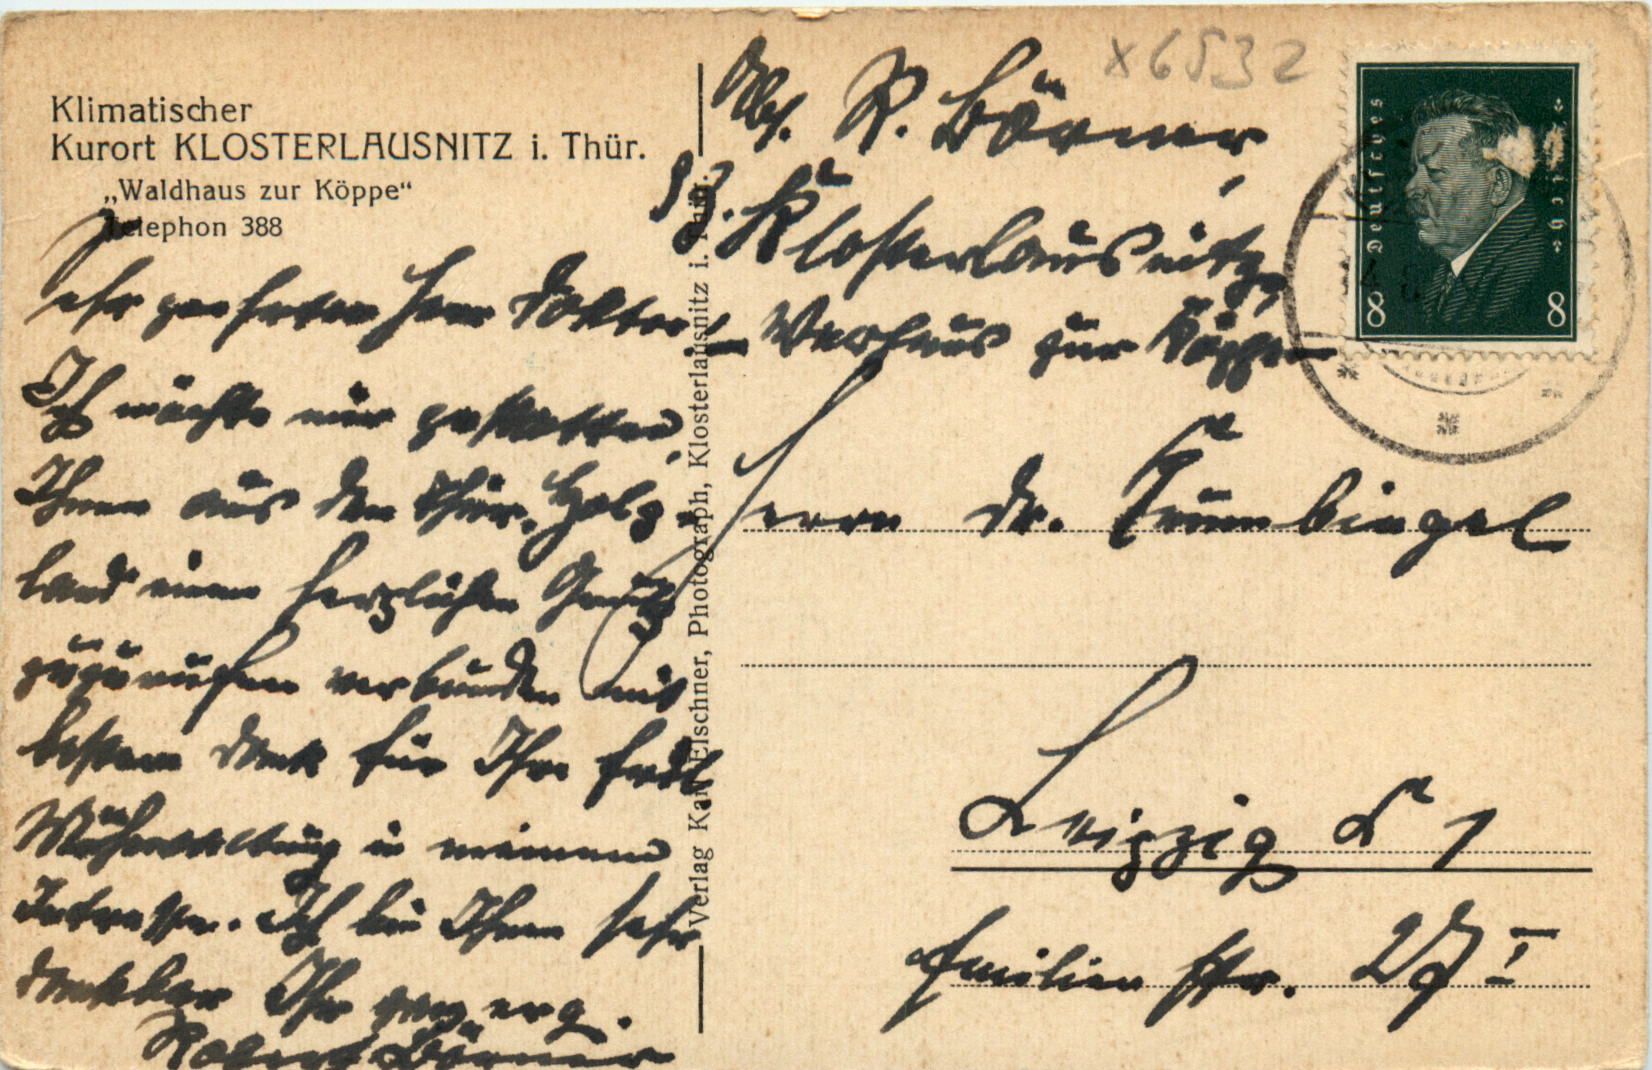 Klimatischer
Kurort KLOSTERLAUSNITZ i. Thür.
„Waldhaus zur Köppe“
Telephon 388
Sehr geehrter Herr Doktor!
Ich möchte mir gestatten,
Ihnen aus dem Thür. Holz-
land einen herzlichen Gruß
zuzurufen verbunden mit
bestem Dank für Ihre frdl.
Mühewaltung in meinem
Intresse. Ich bin Ihnen sehr
dankbar Ihr ganz erg.
Robert Börner
Verlag Karl Elschner, Photograph, Klosterlausnitz i. Thür.
Abs. R. Börner,
Klosterlausnitz,
zur Köppe
x6532
Deutsches Reich
8 8
Herrn Dr.
Leipzig C 1
Emilienstr. I